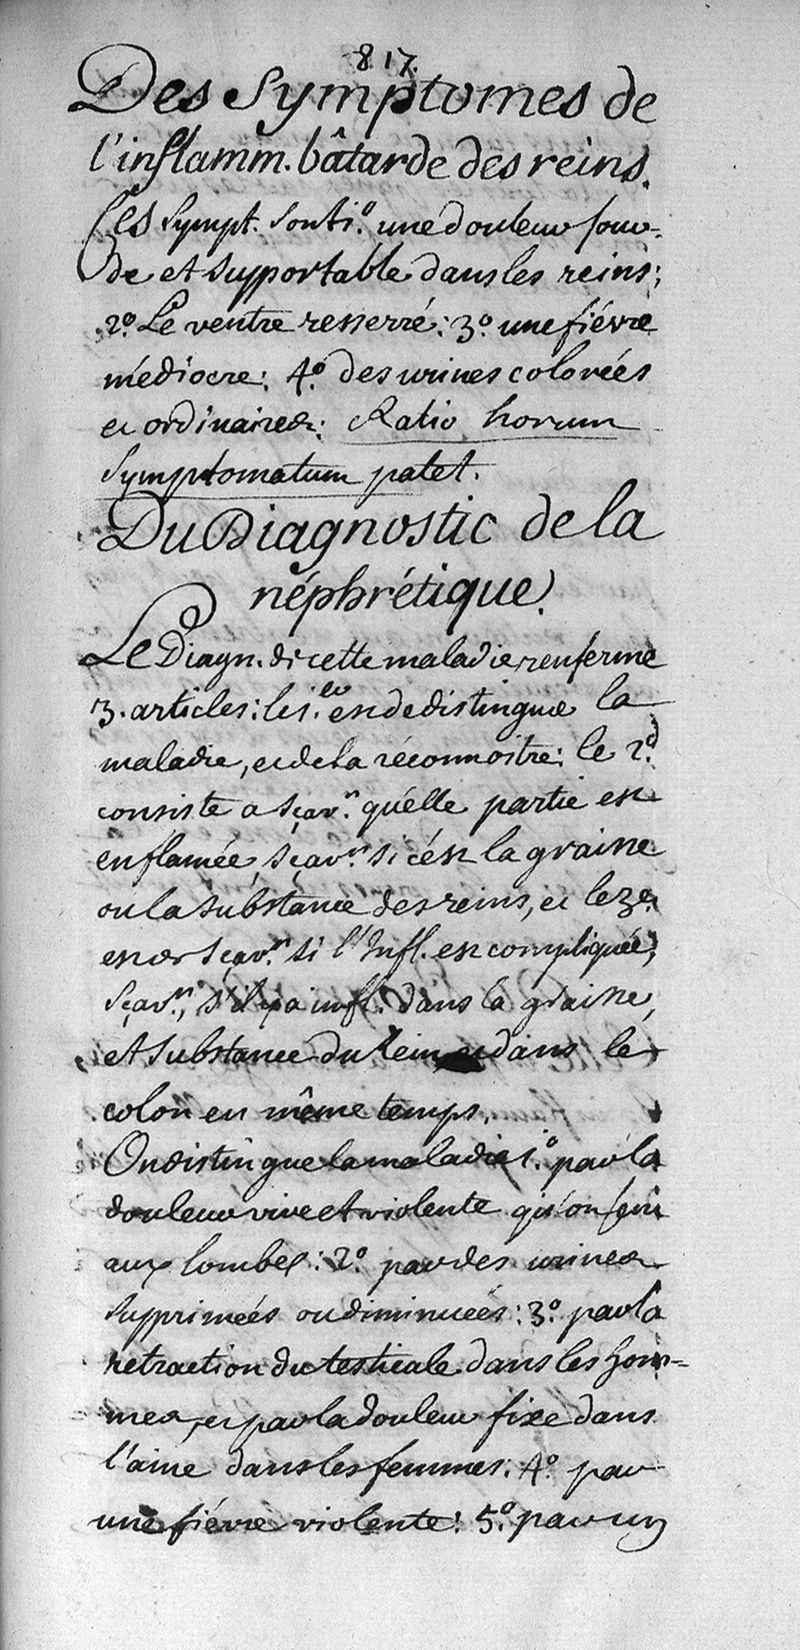 817.
Des Symptomes de
l'inflamm. bâtarde des reins.
Ces sympt. sont 1.º une douleur sour-
de et supportable dans les reins;
2.º Le ventre resserré: 3.º une fiévre
médiocre: 4.º des urines colorées
et ordinaires: Ratio horum
symptomatum patet.
Du Diagnostic de la
néphrétique.
Le Diagn. de cette maladie renferme
3. articles: le 1.er est de distinguer la
maladie, et de la réconnoître: le 2.d
consiste a sçav.r quélle partie est
enflamée, sçav.r si c'ést la graisse
ou la substance des reins, et le 3.e
est de sçav.r si l'Infl. est compliquée,
sçav.r, s'il y a infl. dans la graisse,
et substance du rein et dans le
colon en même temps.
On distingue la maladie 1.º par la
douleur vive et violente qu'on sent
aux lombes: 2.º par des urines
supprimées ou diminuées: 3.º par la
retraction du testicule dans les hom-
mes, et par la douleur fixe dans
l'aine dans les femmes: 4.º par
une fiévre violente: 5.º par un